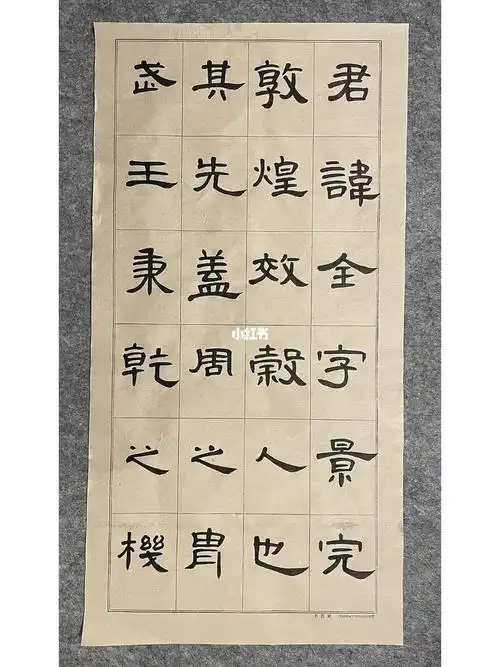 君諱全字景完
敦煌效穀人也
其先蓋周之胄
武王秉乾之機
小红书